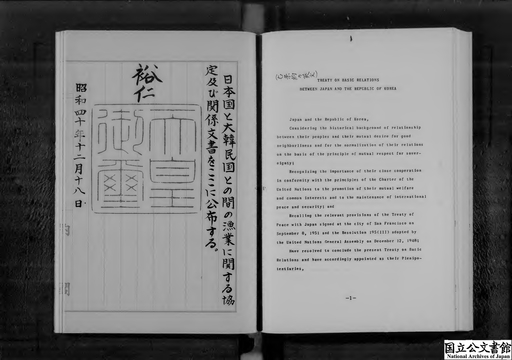 日本国と大韓民国との間の漁業に関する協
定及び関係文書をここに公布する。
裕仁
天皇
御璽
昭和四十年十二月十八日
TREATY ON BASIC RELATIONS
BETWEEN JAPAN AND THE REPUBLIC OF KOREA
Japan and the Republic of Korea,
Considering the historical background of relationship
between their peoples and their mutual desire for good
neighborliness and for the normalization of their relations
on the basis of the principle of mutual respect for sover-
eignty;
Recognizing the importance of their close cooperation
in conformity with the principles of the Charter of the
United Nations to the promotion of their mutual welfare
and common interests and to the maintenance of international
peace and security; and
Recalling the relevant provisions of the Treaty of
Peace with Japan signed at the city of San Francisco on
September 8, 1951 and the Resolution 195(III) adopted by
the United Nations General Assembly on December 12, 1948;
Have resolved to conclude the present Treaty on Basic
Relations and have accordingly appointed as their Plenipo-
tentiaries,
-1-
国立公文書館
National Archives of Japan